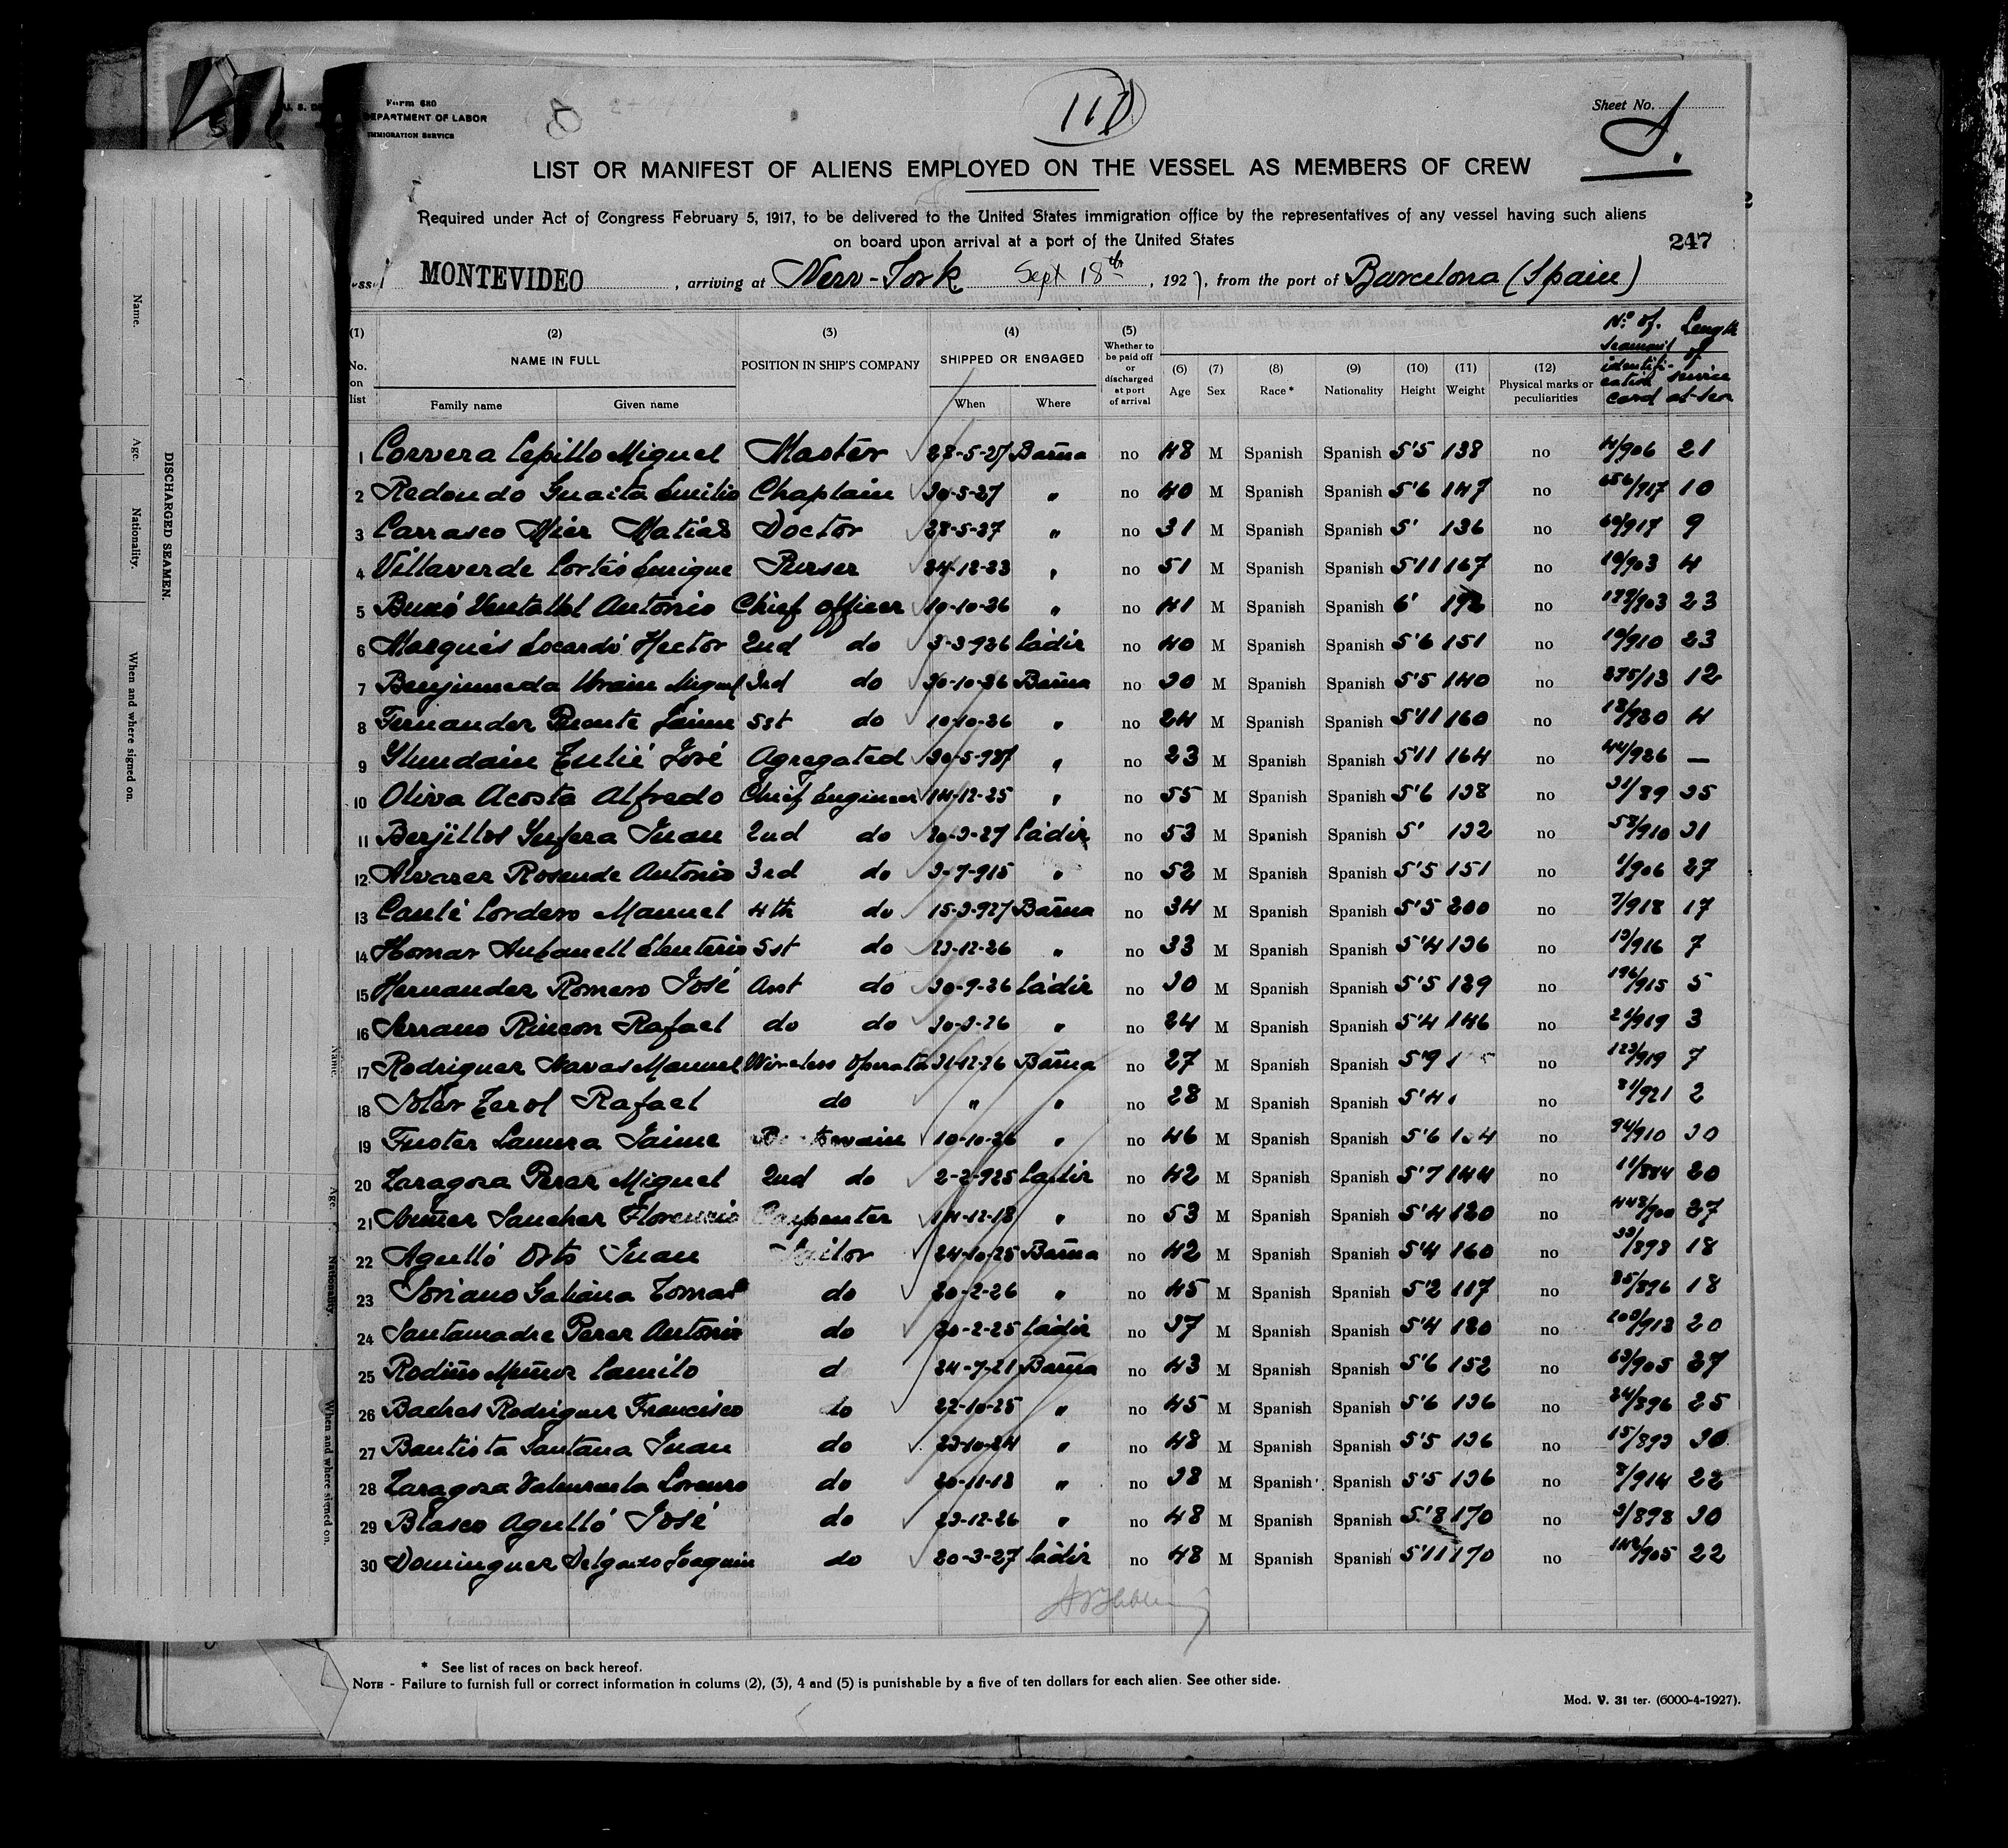 Form 680
DEPARTMENT OF LABOR
IMMIGRATION SERVICE
Sheet No.
LIST OR MANIFEST OF ALIENS EMPLOYED ON THE VESSEL AS MEMBERS OF CREW
Required under Act of Congress February 5, 1917, to be delivered to the United States immigration office by the representatives of any vessel having such aliens
on board upon arrival at a port of the United States
247
MONTEVIDEO , arriving at New-York Sept 18th , 1927, from the port of Barcelona (Spain)
(1) No. on list (2) NAME IN FULL Family name Given name (3) POSITION IN SHIP'S COMPANY (4) SHIPPED OR ENGAGED When Where (5) Whether to be paid off or discharged at port of arrival (6) Age (7) Sex (8) Race * (9) Nationality (10) Height (11) Weight (12) Physical marks or peculiarities Nº of. seaman's identification card Length of service at-sea
1 Corvera Cepillo Miguel Master 28-5-27 Barña no 48 M Spanish Spanish 5'5 138 no 4/906 21
2 Redondo Guaita Emilio Chaplain 30-5-27 " no 40 M Spanish Spanish 5'6 147 no 656/917 10
3 Carrasco Mier Matias Doctor 28-5-27 " no 31 M Spanish Spanish 5' 136 no 60/917 9
4 Villaverde Cortés Enrique Purser 24-12-23 " no 51 M Spanish Spanish 5'11 167 no 10/903 4
5 Antonio Chief officer 10-10-26 " no 41 M Spanish Spanish 6' 192 no 23
6 Marqués Hector 2nd do 3-3-926 Cádiz no 40 M Spanish Spanish 5'6 151 no 10/910 23
7 Benjumeda Miguel 3rd do 30-10-26 Barña no 30 M Spanish Spanish 5'5 140 no 12
8 Fernandez Puente Jaime 5st do 10-10-26 " no 24 M Spanish Spanish 5'11 160 no 4
9 José Agregated 30-5-927 " no 23 M Spanish Spanish 5'11 164 no 44/926 —
10 Oliva Acosta Alfredo Chief Engineer 14-12-25 " no 55 M Spanish Spanish 5'6 138 no 31/89 35
11 Berjillos Yufera Juan 2nd do 20-3-27 Cádiz no 53 M Spanish Spanish 5' 132 no 58/910 31
12 Alvarez Rosende Antonio 3rd do 3-7-915 " no 52 M Spanish Spanish 5'5 151 no 1/906 27
13 Cordero Manuel 4th do 15-3-927 Barña no 34 M Spanish Spanish 5'5 200 no 7/918 17
14 Homar Eleuterio 5st do 23-12-26 " no 33 M Spanish Spanish 5'4 136 no 13/916 7
15 Hernandez Romero José Asst do 30-7-26 Cádiz no 30 M Spanish Spanish 5'5 129 no 196/915 5
16 Serrano Rincon Rafael do do 30-3-26 " no 24 M Spanish Spanish 5'4 146 no 21/919 3
17 Rodriguez Navas Manuel Wireless Operator 31-12-26 Barña no 27 M Spanish Spanish 5'9 no 123/919 7
18 Soler Terol Rafael do " " no 28 M Spanish Spanish 5'4 no 21/921 2
19 Fuster Jaime Boatswain 10-10-26 " no 46 M Spanish Spanish 5'6 no 94/910 30
20 Zaragoza Perez Miguel 2nd do 2-2-925 Cádiz no 42 M Spanish Spanish 5'7 144 no 11/884 20
21 Nuñez Sanchez Florencio Carpenter 14-12-18 " no 53 M Spanish Spanish 5'4 120 no 443/900 27
22 Agulló Orts Juan Sailor 24-10-25 Barña no 42 M Spanish Spanish 5'4 160 no 33/898 18
23 Soriano Galiana Tomas do 20-2-26 " no 45 M Spanish Spanish 5'2 117 no 25/896 18
24 Santamadre Perez Antonio do 20-2-25 Cádiz no 37 M Spanish Spanish 5'4 120 no 20
25 Rodiño Muñoz Camilo d 24-7-21 Barña no 43 M Spanish Spanish 5'6 152 no 63/905 27
26 Rodriguez Francisco do 22-10-25 " no 45 M Spanish Spanish 5'6 136 no 24/896 25
27 Bautista Santana Juan do 23-10-24 " no 48 M Spanish Spanish 5'5 136 no 15/893 30
28 Zaragoza Valenzuela Lorenzo do 20-11-18 " no 38 M Spanish Spanish 5'5 136 no 8/914 22
29 Blasco Agulló José do 23-12-26 " no 48 M Spanish Spanish 5'8 170 no 3/898 30
30 Dominguez Delgado Joaquin do 20-3-27 Cádiz no 48 M Spanish Spanish 5'11 170 no 22
* See list of races on back hereof.
NOTE - Failure to furnish full or correct information in colums (2), (3), 4 and (5) is punishable by a five of ten dollars for each alien. See other side.
Mod. V. 31 ter. (6000-4-1927).
DISCHARGED SEAMEN.
Name.
Age.
Nationality.
When and where signed on.
Name.
Age.
Nationality.
When and where signed on.